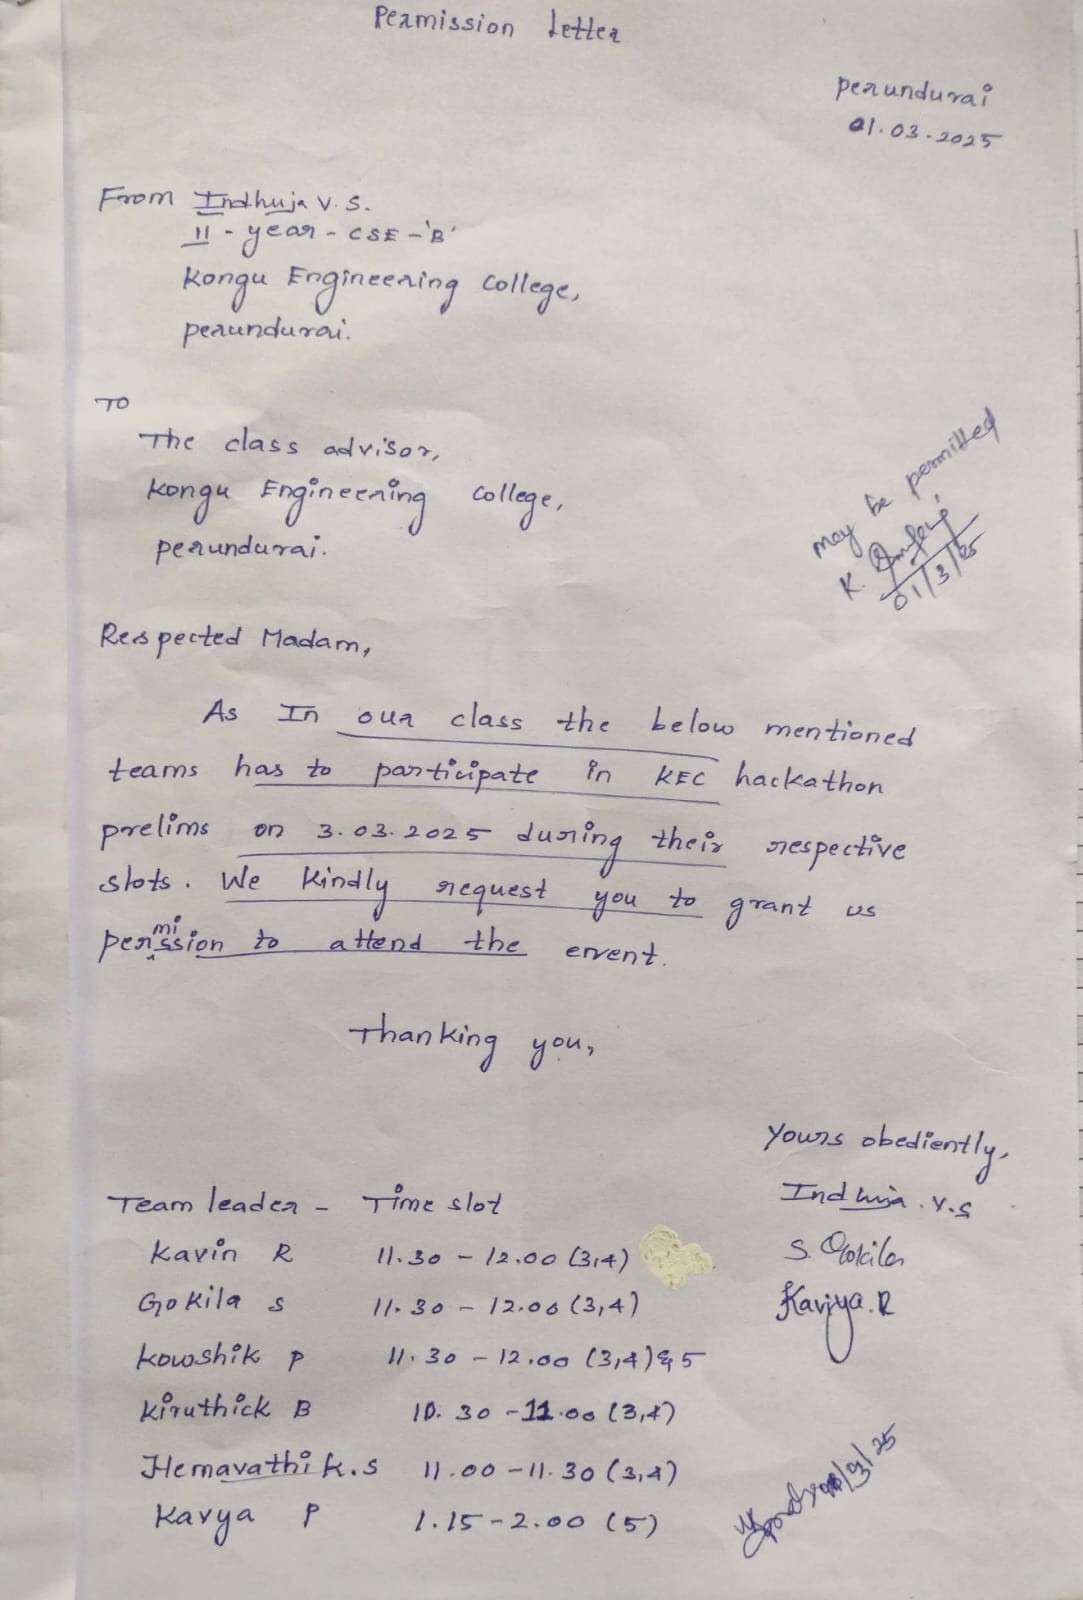 Permission Letter
Perundurai
01.03.2025
From Indhuja V. S.
II - year - CSE - 'B'
Kongu Engineering College,
perundurai.
TO
The class advisor,
Kongu Engineering College,
perundurai.
may be permitted
K.
01/3/25
Respected Madam,
As In our class the below mentioned
teams has to participate in KEC hackathon
prelims on 3.03.2025 during their respective
slots. We kindly request you to grant us
permission to attend the event.
Thanking you,
Yours obediently,
Indhuja . V.S
S. Gokila
Kavya.R
Team leader - Time slot
Kavin R 11.30 - 12.00 (3,4)
Gokila S 11.30 - 12.00 (3,4)
Kowshik P 11.30 - 12.00 (3,4) & 5
Kiruthick B 10.30 - 11.00 (3,4)
Hemavathi K.S 11.00 - 11.30 (3,4)
Kavya P 1.15 - 2.00 (5)